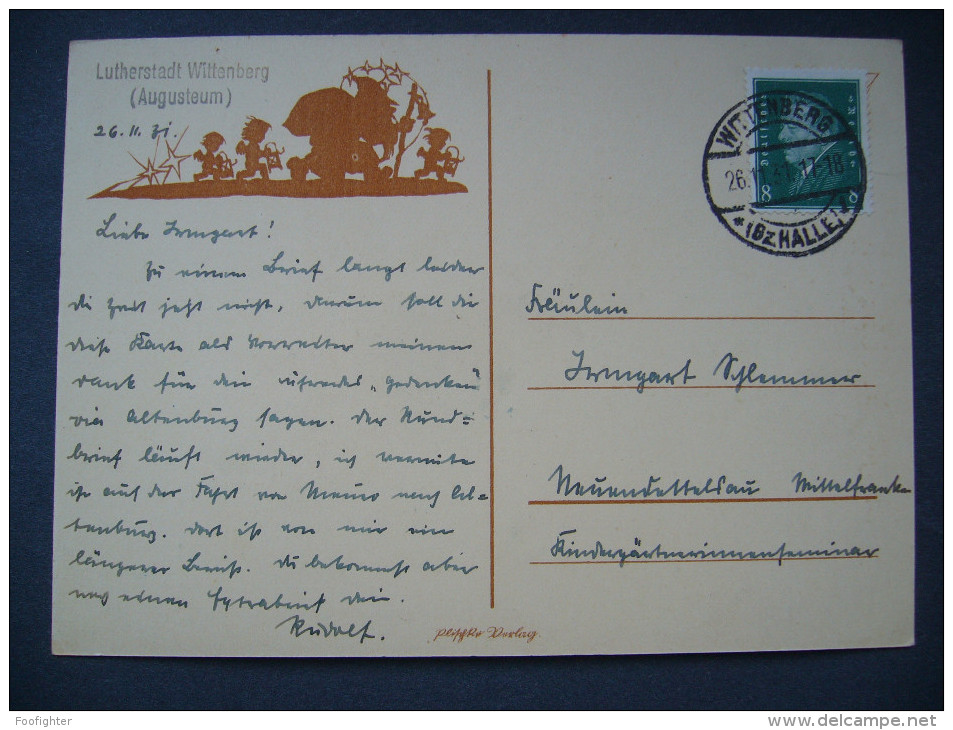 Lutherstadt Wittenberg
(Augusteum)
26.11.31.
Liebe Irmgart!
Zu einem Brief langt leider
die Zeit jetzt nicht, darum soll dir
diese Karte als Vorreiter meinen
Dank für dein „Gedenken"
via Altenburg sagen. Der Rund=
brief läuft wieder, ich vermute
ist auf der Fahrt von nach Al=
tenburg. Dort ist von mir ein
längerer Bericht. Du bekommst aber
noch einen Extrabrief dein.
Rudolf.
Plischke Verlag.
Deutsches Reich
8 8
WITTENBERG
26.11.31.17-18
*(BZ HALLE)
Fräulein
Irmgart Schlemmer
Neuendettelsau Mittelfranken
Kindergärtnerinnenseminar
Foofighter
www.delcampe.net